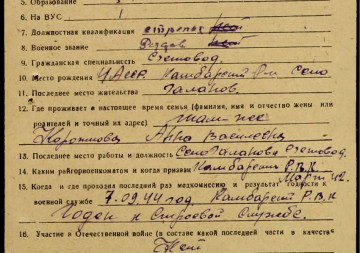 5. Образование
6. На ВУС 1
7. Должностная квалификация стрелок нет
8. Военное звание Рядов нет
9. Гражданская специальность Счетовод.
10. Место рождения УАССР. Камбарский Р-н Село
11. Последнее место жительства Галаново.
12. Где проживает в настоящее время семья (фамилия, имя и отчество жены или
родителей и точный их адрес) там же
Анна Васильевна
13. Последнее место работы и должность Село Галаново Счетовод.
14. Каким райгорвоенкоматом и когда призван Камбарским Р.В.К.
Март 42.
15. Когда и где проходил последний раз медкомиссию и результат годности к
военной службе 7.09.44 год Камбарский Р.В.К
Годен к Строевой Службе.
16. Участие в Отечественной войне (в составе какой последней части в качестве
Нет